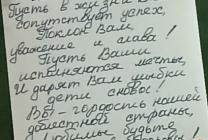 Пусть в жизни В
сопутствует успех,
Поклон Вам,
уважение и слава!
Пусть Ваши
исполняются мечты,
И дарят Вам улыбки
дети снова!
Вы - гордость нашей
доблестной страны,
Любимы будьте